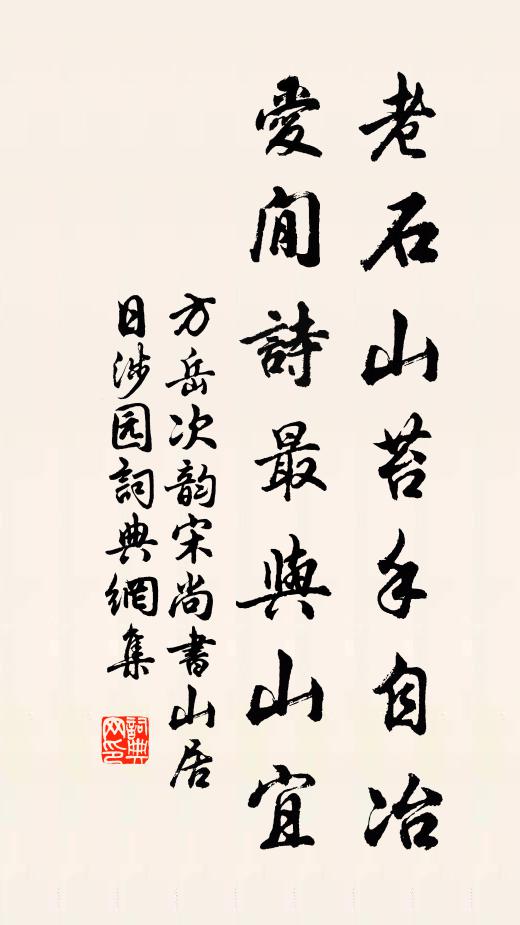 老石山苔手自冶
愛閒詩最與山宜
方岳次韵宋尚書山居
日涉园詞典網集
詞典網印